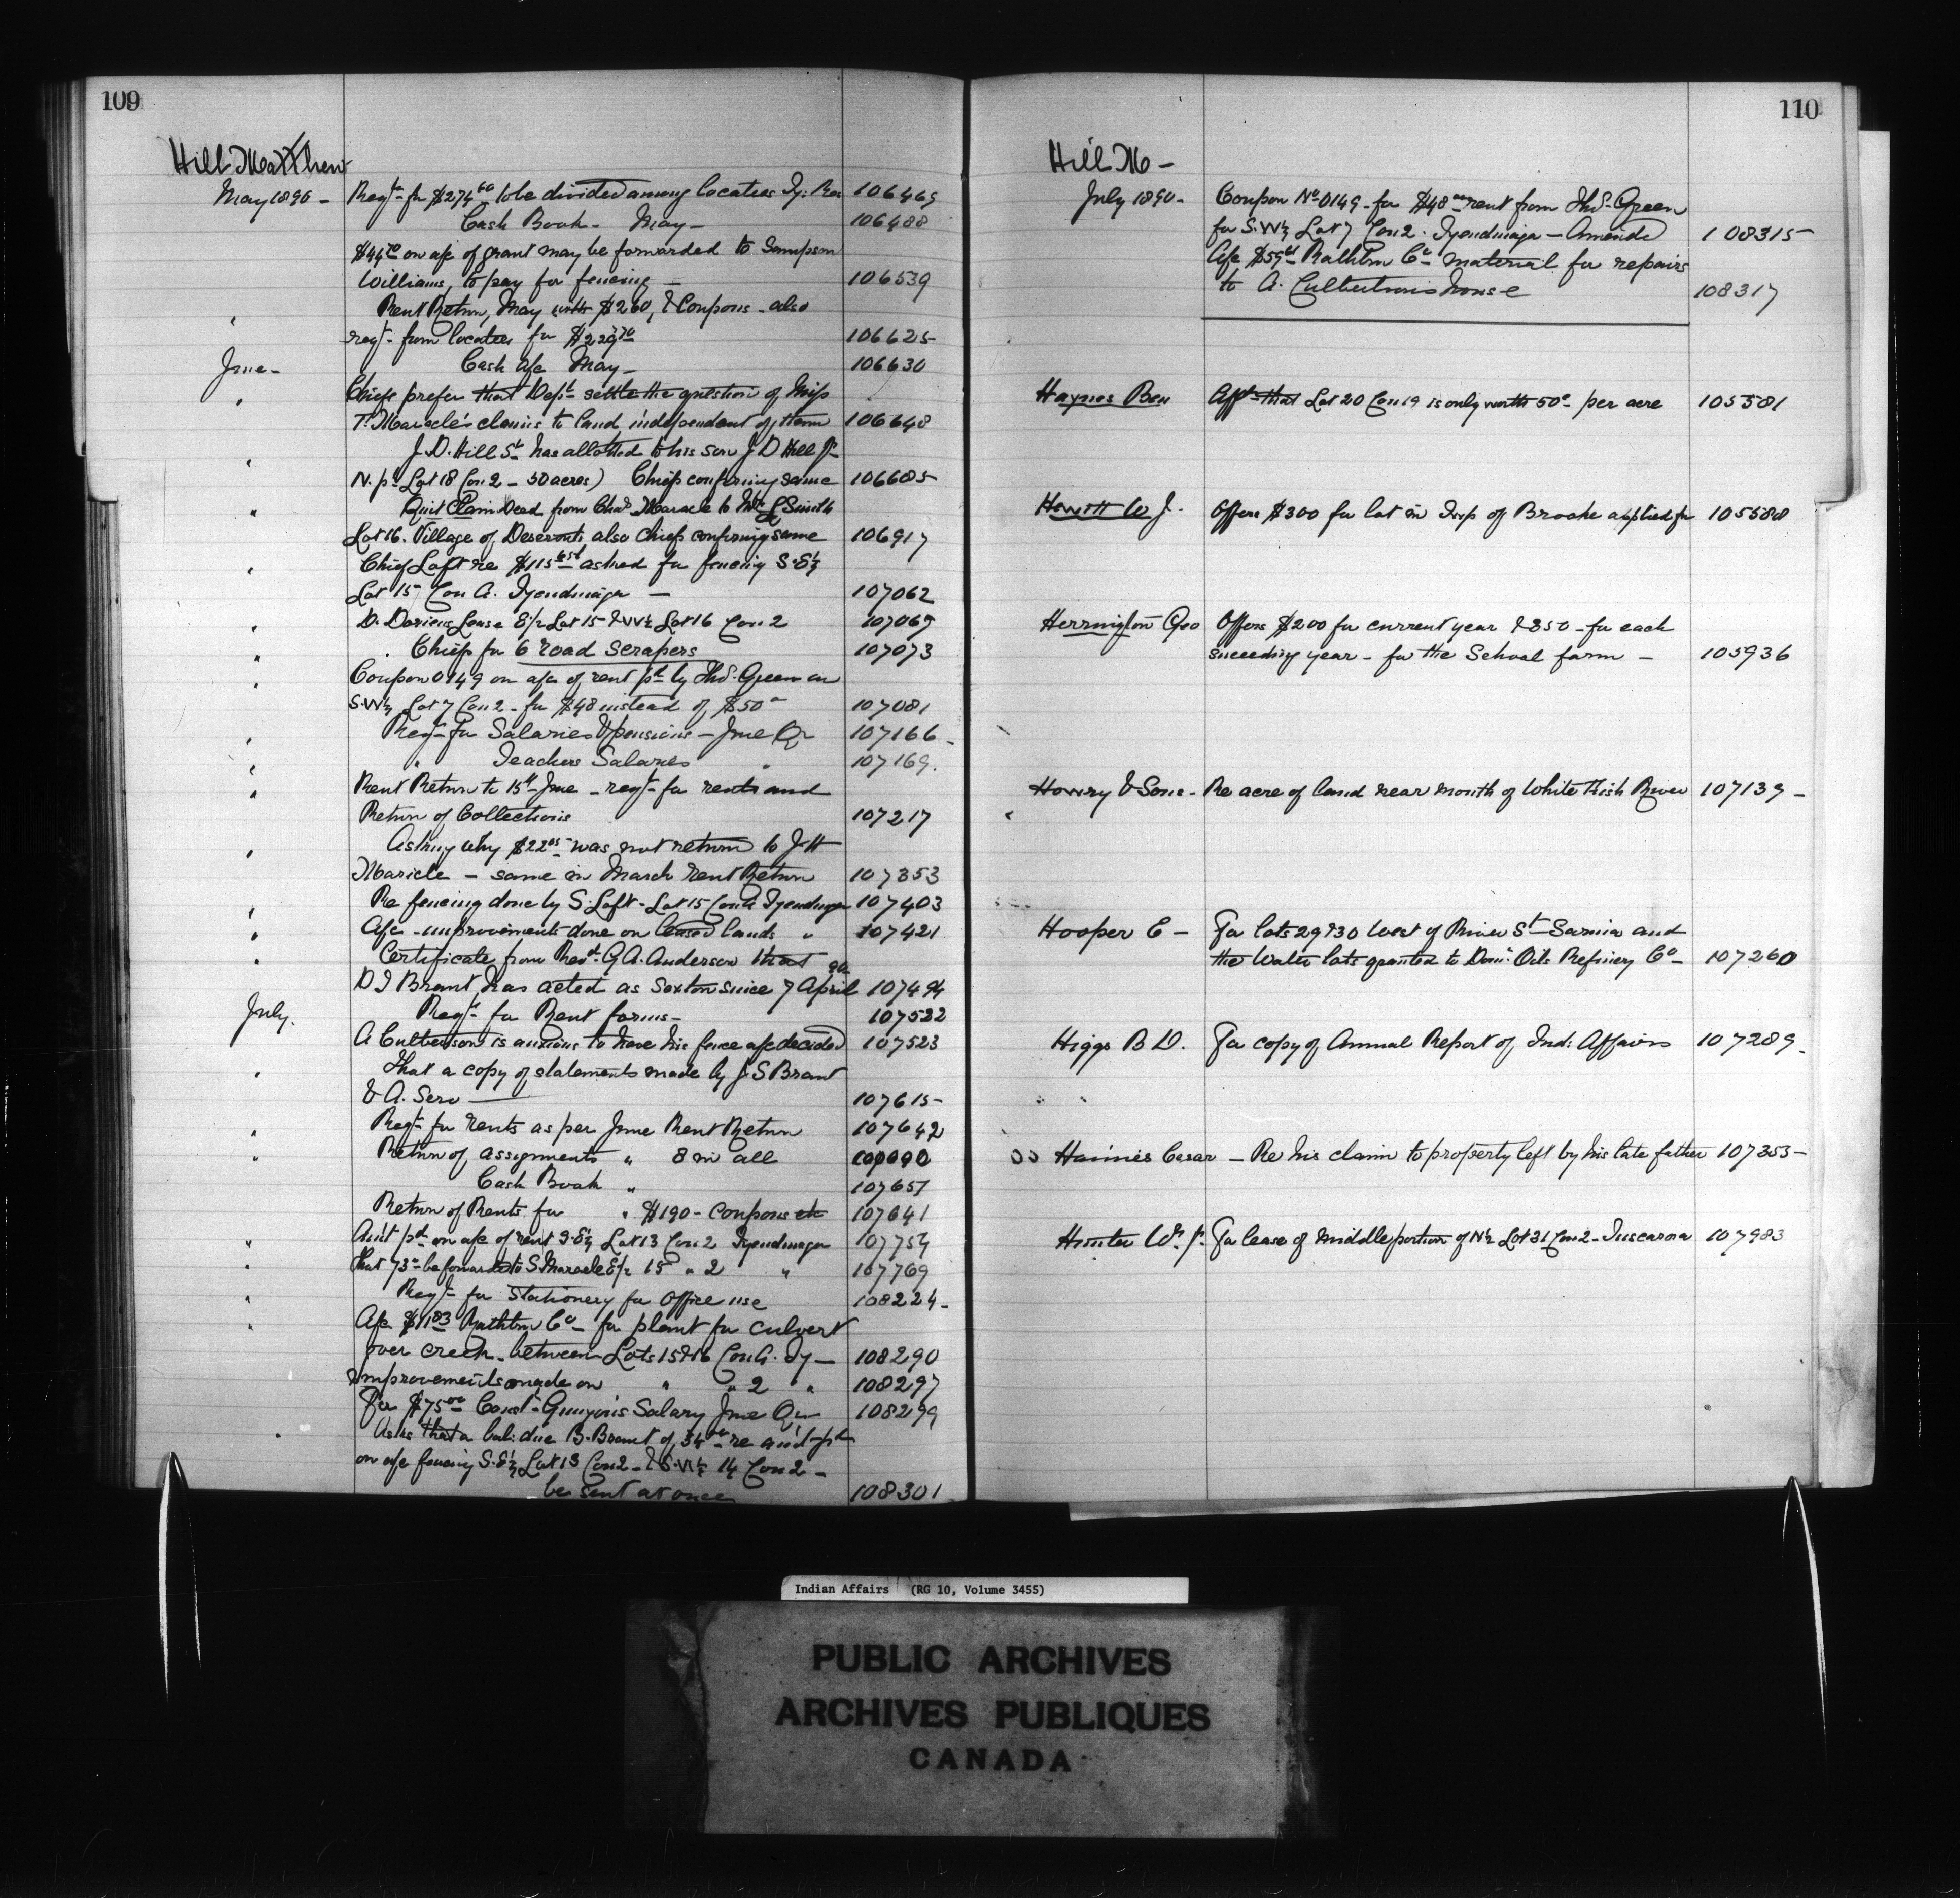 109
Hill Matthew
May 1890 - Reqt for $274 60 to be divided among locatees Ty. Res 106469
Cash Book - May - 106488
$44 70 on a/c of grant may be forwarded to Sampson
Williams, to pay for fencing - 106539
" Rent Return, May with $260, & Coupons - also
reqt from locatees for $229 70 106625
June - Cash a/c May - 106630
" Chiefs prefer that Dept settle the question of Miss
T. Maracle's claims to land independent of them 106648
" J. D. Hill Sr has allotted to his son J D Hill Jr
N. pt Lot 18 Con 2 - 50 acres) Chiefs confirming same 106685
" Quit Claim Deed from Chas Maracle to Wm L Smith
Lot 16. Village of Deseronto also Chiefs confirming same 106917
" Chief Loft re $115 asked for fencing S.E½
Lot 15 Con A. Tyendinaga - 107062
" D. Dorieus Lease E½ Lot 15 & W½ Lot 16 Con 2 107069
" Chiefs for 6 road scrapers 107073
" Coupon 0149 on a/c of rent pd by Thos. Green on
S.W½ Lot 7 Con 2 - for $48 instead of $50 107081
" Reqt for Salaries & pensions - June Qr 107166 -
" " Teachers Salaries " 107169.
" Rent Return to 15th June - reqt for rents and
Return of Collections 107217
" Asking why $22 05 was not return to J H
Maricle - same in March Rent Return 107353
" Re fencing done by S. Loft - Lot 15 Con A Tyendinaga 107403
" A/c - improvements done on leased lands " 107421
" Certificate from Revd. G A. Anderson that
D J Brant has acted as Sexton since 7 April 107494
July. Reqt for Rent forms - 107522
A Culbertson is anxious to have his fence a/c decided 107523
" That a copy of statements made by J S Brant
& A. Sero 107615
" Reqt for rents as per June Rent Return 107642
" Return of assignments " 8 in all
Cash Book " 107657
Return of Rents for " $190 - Coupons etc 107641
" Am't pd on a/c of rent S.E½ Lot 13 Con 2 Tyendinaga 107754
" that 73 be forwarded to S Maracle E½ 15 " 2 " 107769
" Reqt for Stationery for Office use 108224 -
" A/c $11 83 Rathbun Co - for plank for culvert
over creek - between Lots 15 & 16 Con A. Ty - 108290
Improvements made on " " 2 " 108297
For $75 00 Const. Gunyou's Salary June Qr 108299
" Asks that a bal: due B. Brant of 34 re am't pd
on a/c fencing S.E½ Lot 13 Con 2 - & S.W½ 14 Con 2 -
be sent at once 108301
110
Hill M -
July 1890 - Coupon No 0149 - for $48 00 rent from Thos. Green
for S.W½ Lot 7 Con 2. Tyendinaga - Amended 108315
A/c $59 Rathbun Co material for repairs
to A. Culbertson's house 108317
Haynes Ben Afft that Lot 20 Con 19 is only worth 50c per acre 105581
Howitt W J. Offers $300 for lot in Twp of Brooke applied for 105588
Herrington Geo Offers $200 for current year & 350 - for each
succeeding year - for the School farm - 105936
Howry & Sons - Re acre of land near mouth of White Fish River 107139 -
Hooper E - For lots 29 & 30 West of River St Sarnia and
the Water lots granted to Dom. Oils Refinery Co - 107260
Higgs B D. For copy of Annual Report of Ind: Affairs 107289 -
Haines Cesar - Re his claim to property left by his late father 107353 -
Hunter Wm Jr. For lease of middle portion of N½ Lot 31 Con 2 - Tuscarora 107983
Indian Affairs (RG 10, Volume 3455)
PUBLIC ARCHIVES
ARCHIVES PUBLIQUES
CANADA